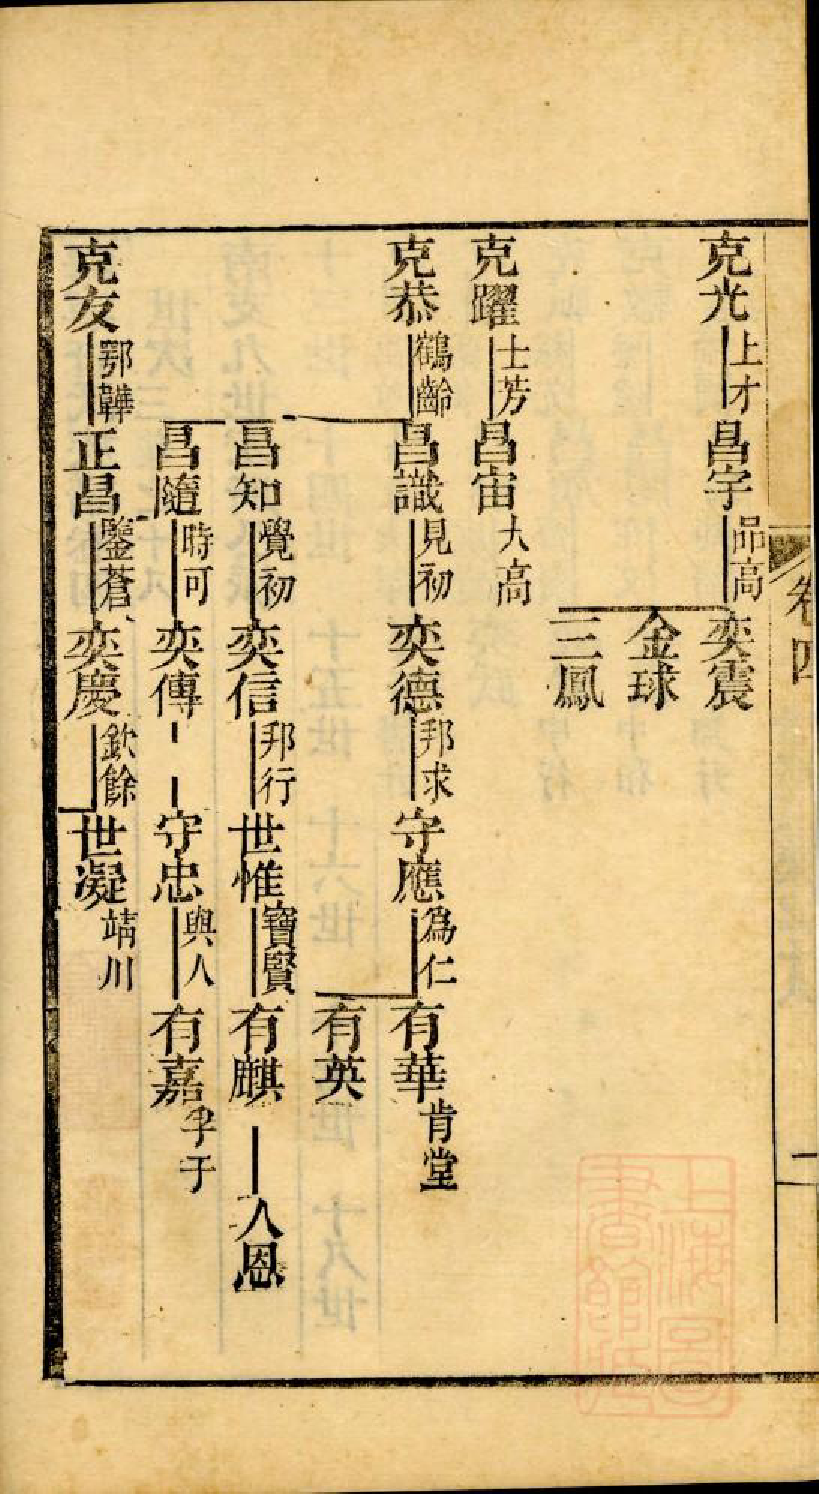 卷四
克光 上才 昌宇 品高 奕震
金球
三鳳
克躍 士芳 昌宙 大高
克恭 鶴齡 昌識 見初 奕德 邦求 守應 為仁 有華 肯堂
有英
昌知 覺初 奕信 邦行 世惟 寶賢 有麒 入恩
昌隨 時可 奕傳 守忠 與人 有嘉 孚于
克友 鄂韡 正昌 鑒蒼 奕慶 欽餘 世凝 靖川
上海圖書館藏